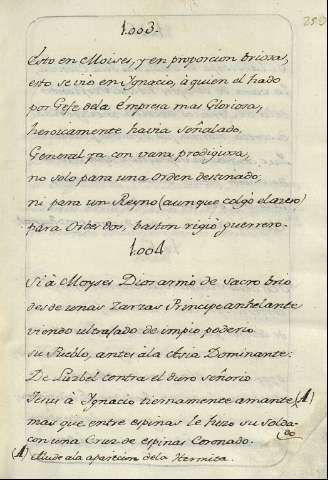 1.003.
Esto en Moises, y en proporcion briosas,
esto se vio en Ygnacio, à quien el hado
por Gefe de la Empresa mas Gloriosa,
heroicamente havia señalado,
General ya con vara prodigiosa,
no solo para una Orden destinado;
ni para un Reyno (aunque colgò el azero)
para Orbes dos, baston rigiò guerrero.
1.004
Si à Moyses Dios armò de sacro brio
desde unas Zarzas Principe anhelante
viendo ultrajado de impio poderio
su Pueblo, antes à la Dominante:
De Luzbel contra el duro señorio
Jesus à Ygnacio tiernamente amante (A)
mas que entre espinas le hizo su Solda-
do
con una Cruz de espinas Coronado.
(A) Alude a la aparicion de la Hermita.